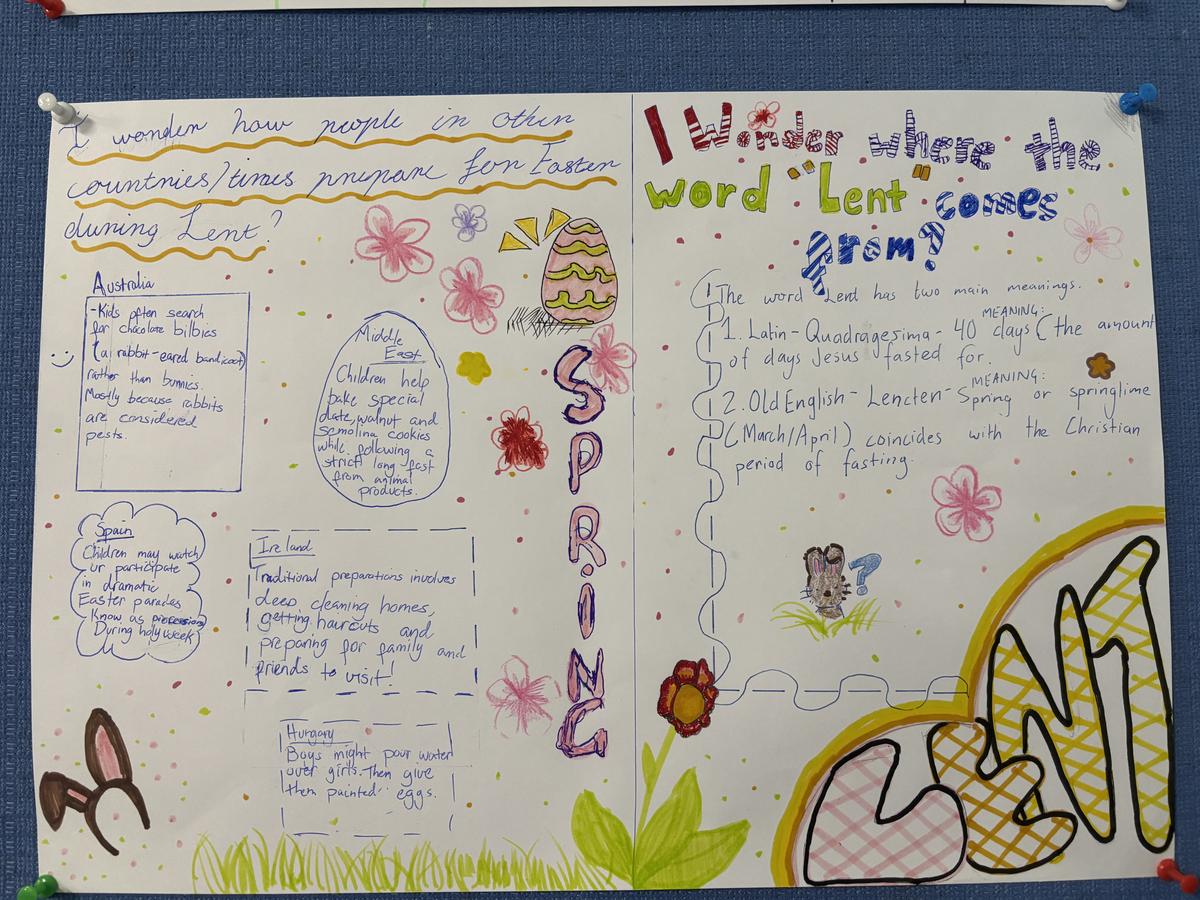 I wonder how people in other
countries/times prepare for Easter
during Lent?
Australia
-Kids often search
for chocolate bilbies
(a rabbit-eared bandicoot)
rather than bunnies.
Mostly because rabbits
are considered
pests.
Middle
East
Children help
bake special
date, walnut and
semolina cookies
while following a
strict long fast
from animal
products.
Spain
Children may watch
or participate
in dramatic
Easter parades
Know as procession
During holy week
Ireland
Traditional preparations involves
deep cleaning homes,
getting haircuts and
preparing for family and
friends to visit!
Hungary
Boys might pour water
over girls. Then give
them painted eggs.
SPRiNG
I Wonder where the
word "Lent" comes
from?
The word Lent has two main meanings.
MEANING:
1. Latin - Quadragesima - 40 days (the amount
of days Jesus fasted for.
MEANING:
2. Old English - Lencten - Spring or springtime
(March/April) coincides with the Christian
period of fasting.
?
LENT